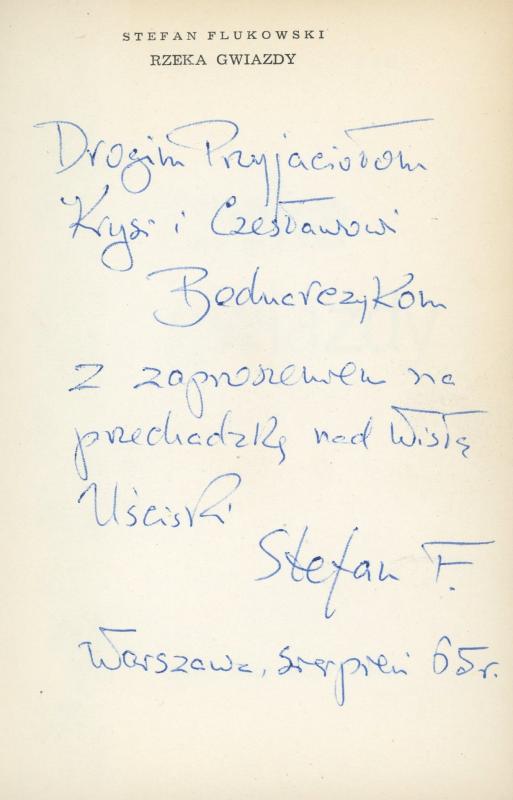 STEFAN FLUKOWSKI
RZEKA GWIAZDY
Drogim Przyjaciołom
Krysi i Czesławowi
Bednarczykom
z zaproszeniem na
przechadzkę nad Wisłą
Uściski
Stefan F.
Warszawa, sierpień 65 r.